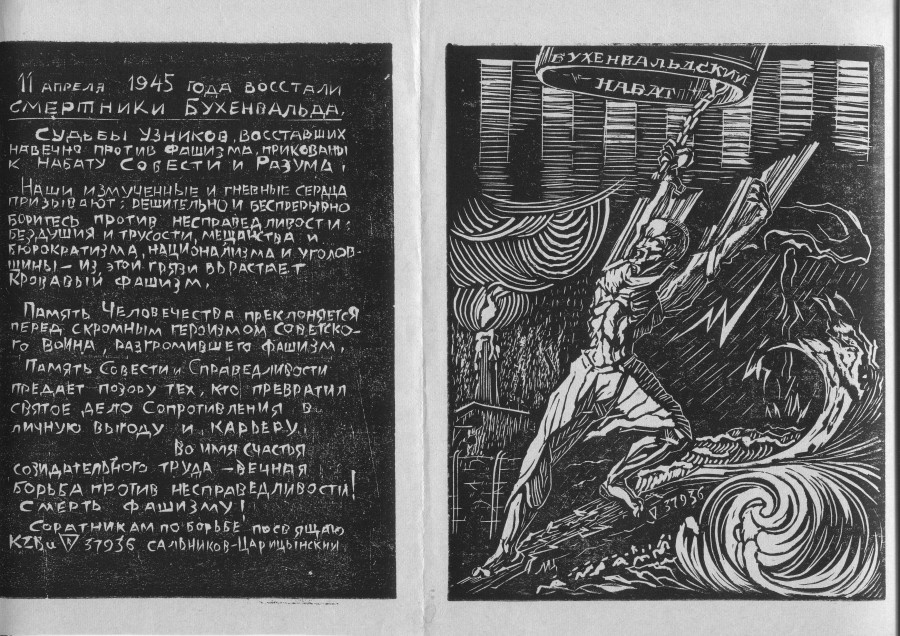 11 АПРЕЛЯ 1945 ГОДА ВОССТАЛИ
СМЕРТНИКИ БУХЕНВАЛЬДА.
СУДЬБЫ УЗНИКОВ, ВОССТАВШИХ
НАВЕЧНО ПРОТИВ ФАШИЗМА, ПРИКОВАНЫ
К НАБАТУ СОВЕСТИ И РАЗУМА!
НАШИ ИЗМУЧЕННЫЕ И ГНЕВНЫЕ СЕРДЦА
ПРИЗЫВАЮТ: РЕШИТЕЛЬНО И БЕСПРЕРЫВНО
БОРИТЕСЬ ПРОТИВ НЕСПРАВЕДЛИВОСТИ,
БЕЗДУШИЯ И ТРУСОСТИ, МЕЩАНСТВА И
БЮРОКРАТИЗМА, НАЦИОНАЛИЗМА И УГОЛОВ-
ЩИНЫ — ИЗ ЭТОЙ ГРЯЗИ ВЫРАСТАЕТ
КРОВАВЫЙ ФАШИЗМ.
ПАМЯТЬ ЧЕЛОВЕЧЕСТВА ПРЕКЛОНЯЕТСЯ
ПЕРЕД СКРОМНЫМ ГЕРОИЗМОМ СОВЕТСКО-
ГО ВОИНА, РАЗГРОМИВШЕГО ФАШИЗМ.
ПАМЯТЬ СОВЕСТИ И СПРАВЕДЛИВОСТИ
ПРЕДАЕТ ПОЗОРУ ТЕХ, КТО ПРЕВРАТИЛ
СВЯТОЕ ДЕЛО СОПРОТИВЛЕНИЯ В
ЛИЧНУЮ ВЫГОДУ И КАРЬЕРУ.
ВО ИМЯ СЧАСТЬЯ
СОЗИДАТЕЛЬНОГО ТРУДА — ВЕЧНАЯ
БОРЬБА ПРОТИВ НЕСПРАВЕДЛИВОСТИ!
СМЕРТЬ ФАШИЗМУ!
СОРАТНИКАМ ПО БОРЬБЕ ПОСВЯЩАЮ
KZBu R 37936 САЛЬНИКОВ-ЦАРИЦЫНСКИЙ
БУХЕНВАЛЬДСКИЙ
НАБАТ
37936